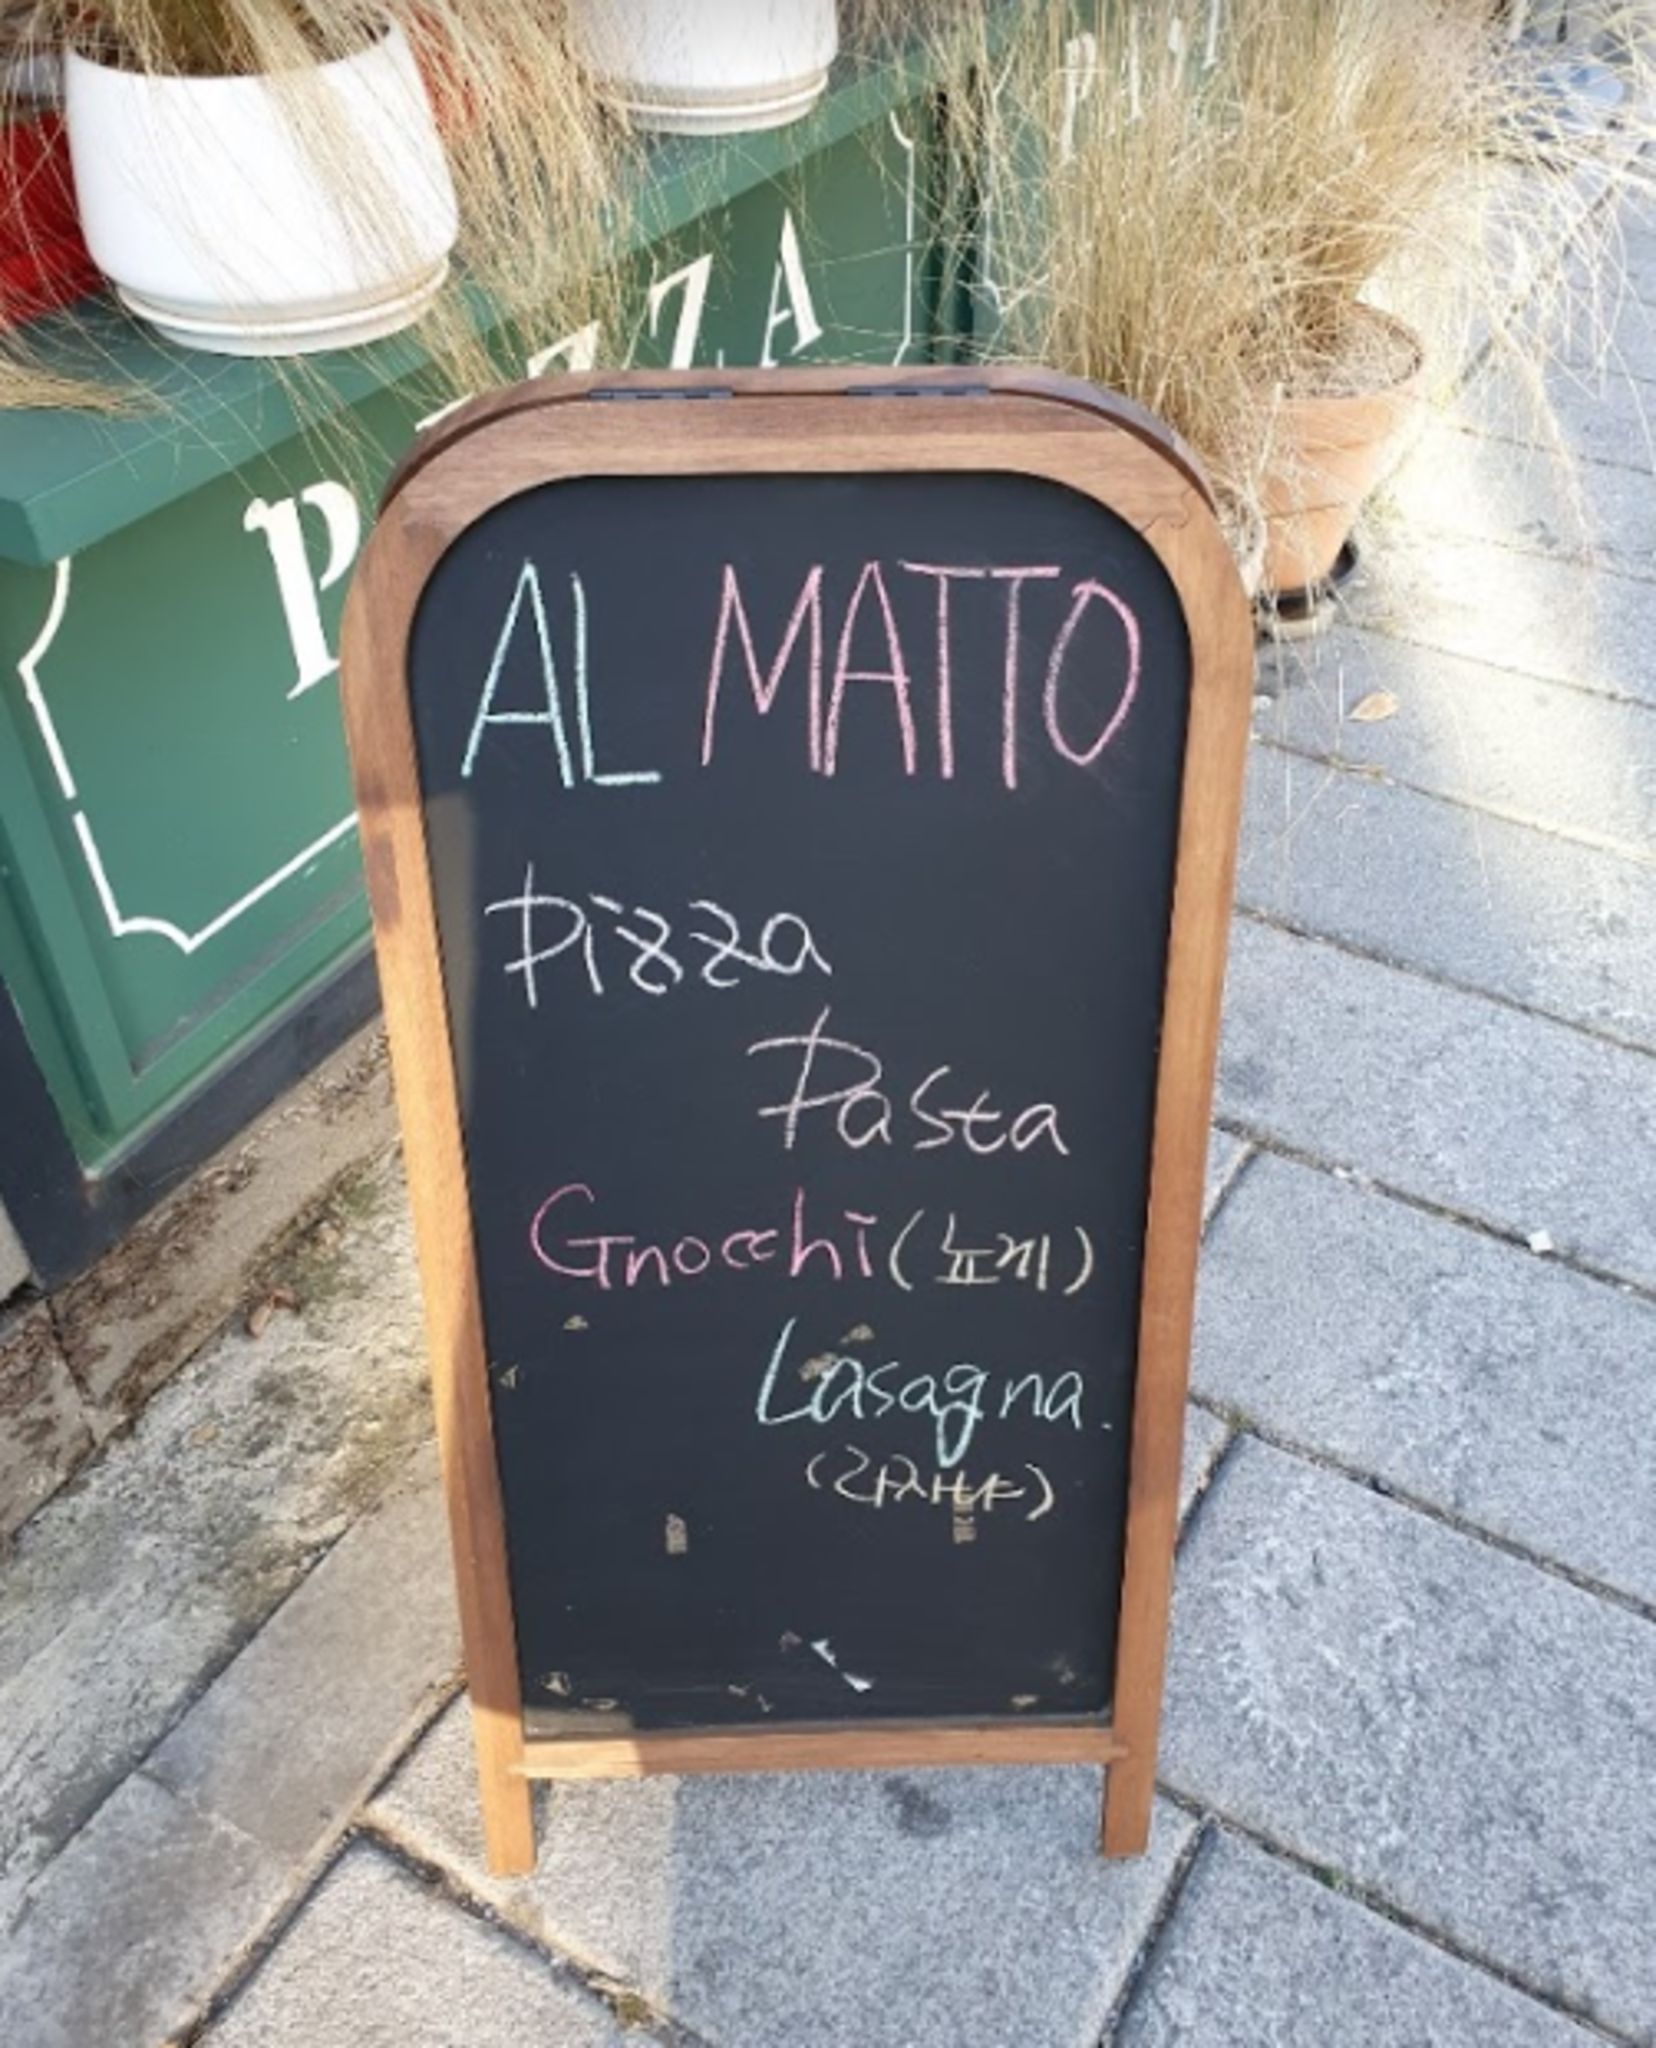 PIZZA
AL MATTO
Pizza
Pasta
Gnocchi (뇨끼)
Lasagna.
(라자냐)